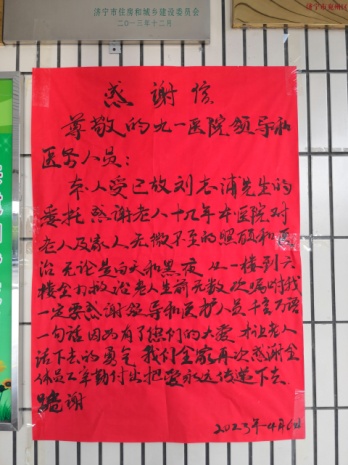 济宁市住房和城乡建设委员会
二〇一三年十二月
济宁市兖州区
感谢信
尊敬的九一医院领导和
医务人员：
本人受已故刘志浦先生的
委托感谢老人十九年本医院对
老人及家人无微不至的照顾和医
治无论是白天和黑夜从一楼到六
楼全力救治老人生前无数次嘱咐我
一定要感谢领导和医护人员千言万语
一句话因为有了您们的大爱才让老人
活下去的勇气我们全家再次感谢全
体员工辛勤付出把爱永远传递下去
谢
2023年4月6日